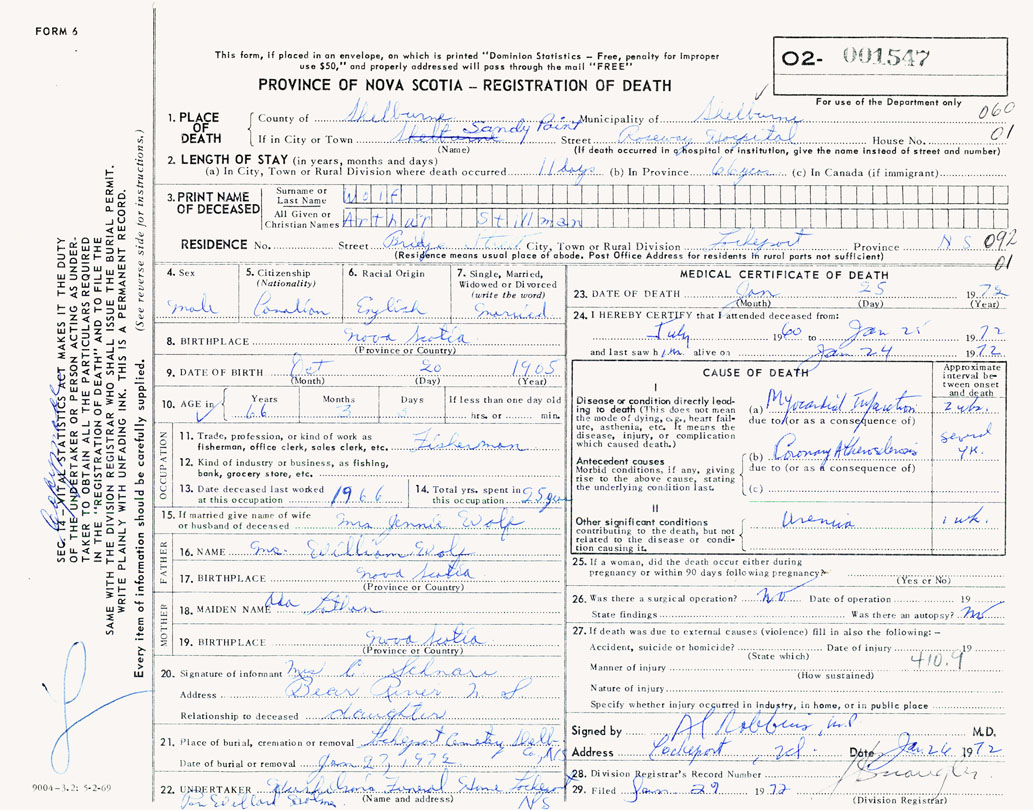 FORM 6
This form, if placed in an envelope, on which is printed "Dominion Statistics – Free, penalty for improper
use $50," and properly addressed will pass through the mail "FREE"
O2- 001547
For use of the Department only
PROVINCE OF NOVA SCOTIA – REGISTRATION OF DEATH
060
01
1. PLACE OF DEATH
County of Shelburne Municipality of Shelburne
If in City or Town Shelburne Sandy Point Street Roseway Hospital House No.
(Name) (If death occurred in a hospital or institution, give the name instead of street and number)
2. LENGTH OF STAY (in years, months and days)
(a) In City, Town or Rural Division where death occurred 11 days (b) In Province 66 years (c) In Canada (if immigrant)
3. PRINT NAME OF DECEASED
Surname or Last Name Wolf
All Given or Christian Names Arthur Stillman
RESIDENCE No. Street Bridge Street City, Town or Rural Division Lockeport Province N S 092
(Residence means usual place of abode. Post Office Address for residents in rural parts not sufficient)
01
4. Sex male
5. Citizenship (Nationality) Canadian
6. Racial Origin English
7. Single, Married, Widowed or Divorced (write the word) married
8. BIRTHPLACE Nova Scotia
(Province or Country)
9. DATE OF BIRTH Oct 20 1905
(Month) (Day) (Year)
10. AGE in Years 66 Months 3 Days 5 If less than one day old
hrs. or min.
OCCUPATION
11. Trade, profession, or kind of work as
fisherman, office clerk, sales clerk, etc. Fisherman
12. Kind of industry or business, as fishing,
bank, grocery store, etc.
13. Date deceased last worked at this occupation 1966
14. Total yrs. spent in this occupation 25 years
15. If married give name of wife
or husband of deceased Mrs Jennie Wolf
FATHER
16. NAME Mr. William Wolf
17. BIRTHPLACE Nova Scotia
(Province or Country)
MOTHER
18. MAIDEN NAME Ada
19. BIRTHPLACE Nova Scotia
(Province or Country)
20. Signature of informant Mrs C Schnare
Address Bear River N S
Relationship to deceased daughter
21. Place of burial, cremation or removal Lockeport Cemetry
Date of burial or removal Jan 27, 1972
22. UNDERTAKER Funeral Home Lockeport
(Name and address) N S
MEDICAL CERTIFICATE OF DEATH
23. DATE OF DEATH Jan 25 1972
(Month) (Day) (Year)
24. I HEREBY CERTIFY that I attended deceased from:
July 1960 to Jan 25 1972
and last saw him alive on Jan 24 1972
CAUSE OF DEATH
Approximate interval between onset and death
I
Disease or condition directly leading to death (This does not mean the mode of dying, e.g., heart failure, asthenia, etc. It means the disease, injury, or complication which caused death.)
(a) Myocardial Infarction 2 wks.
due to (or as a consequence of)
Antecedent causes
Morbid conditions, if any, giving rise to the above cause, stating the underlying condition last.
(b) Coronary Atherosclerosis several yr.
due to (or as a consequence of)
(c)
II
Other significant conditions contributing to the death, but not related to the disease or condition causing it.
Uremia 1 wk.
25. If a woman, did the death occur either during
pregnancy or within 90 days following pregnancy?
(Yes or No)
26. Was there a surgical operation? No Date of operation 19
State findings Was there an autopsy? No
27. If death was due to external causes (violence) fill in also the following: –
Accident, suicide or homicide? Date of injury 19
(State which) 410.9
Manner of injury
(How sustained)
Nature of injury
Specify whether injury occurred in industry, in home, or in public place
Signed by Robbins, M.D. M.D.
Address Lockeport, N.S. Date Jan 26 1972
28. Division Registrar's Record Number
29. Filed Jan 29 1972
(Division Registrar)
SEC. 14 – VITAL STATISTICS ACT MAKES IT THE DUTY
OF THE UNDERTAKER OR PERSON ACTING AS UNDER-
TAKER TO OBTAIN ALL THE PARTICULARS REQUIRED
IN THE "REGISTRATION OF DEATH" AND TO FILE THE
SAME WITH THE DIVISION REGISTRAR WHO SHALL ISSUE THE BURIAL PERMIT.
WRITE PLAINLY WITH UNFADING INK. THIS IS A PERMANENT RECORD.
Every item of information should be carefully supplied. (See reverse side for instructions.)
9004-3.2: 5-2-69